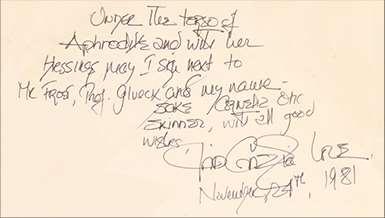 Under the torso of
Aphrodite and with her
blessings may I sign next to
Mr Frost, Prof. Glueck and my name-
sake Cornelia Otis
Skinner, with all good
wishes
November 24th, 1981